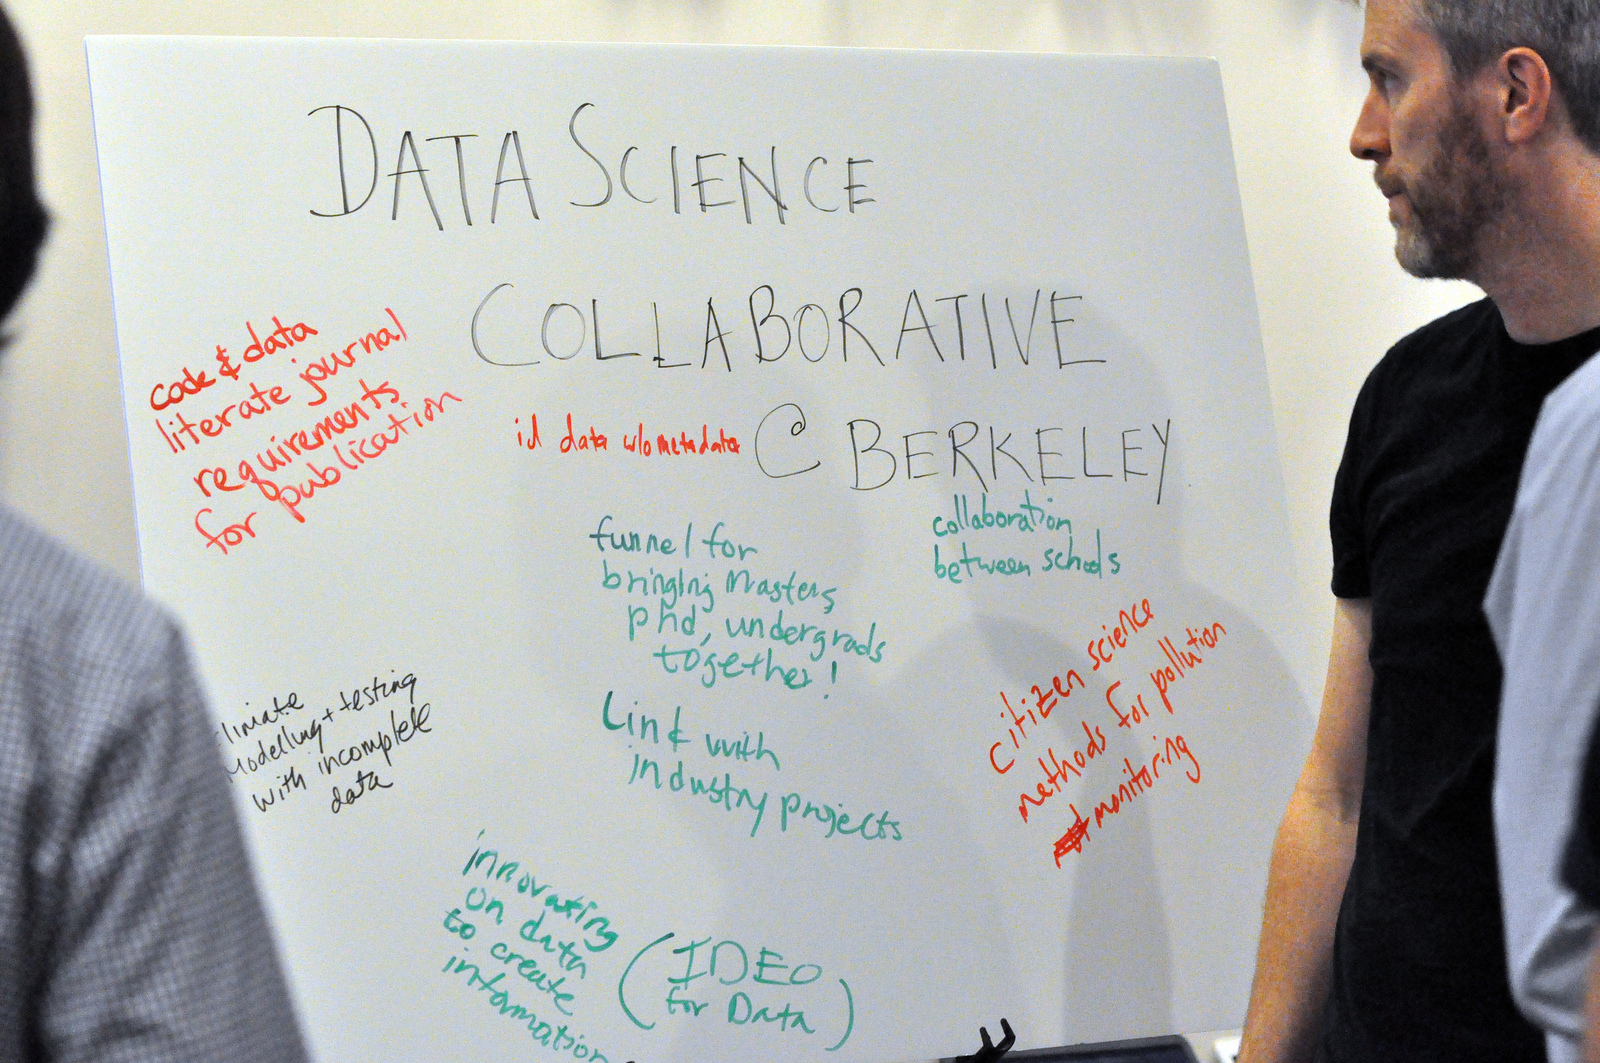 DATA SCIENCE
COLLABORATIVE
@ BERKELEY
code & data
literate journal
requirements
for publication
id data w/o metadata
collaboration
between schools
funnel for
bringing Masters
phd, undergrads
together!
Link with
industry projects
citizen science
methods for pollution
monitoring
limate
Modelling + testing
with incomplete
data
innovating
on data
to create
information
(IDEO
for Data)